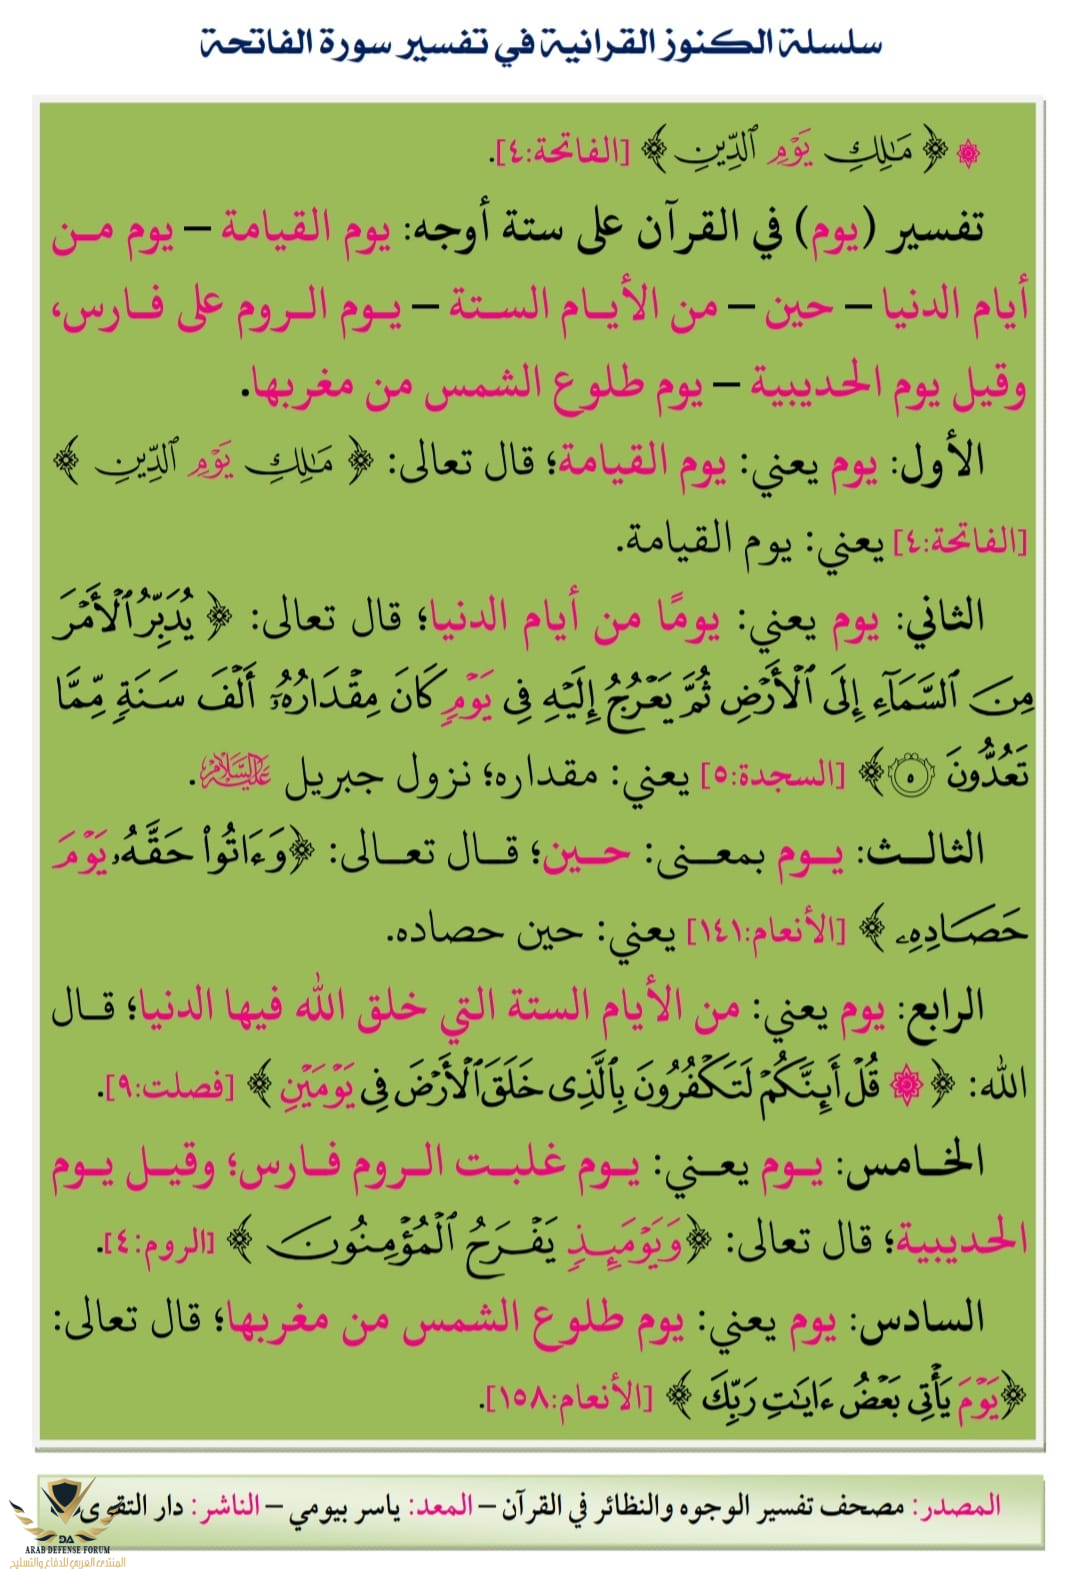 سلسلة الكنوز القرانية في تفسير سورة الفاتحة
﴿ مَٰلِكِ يَوۡمِ ٱلدِّينِ ﴾ [الفاتحة:٤].
تفسير (يوم) في القرآن على ستة أوجه: يوم القيامة – يوم من
أيام الدنيا – حين – من الأيام الستة – يوم الروم على فارس،
وقيل يوم الحديبية – يوم طلوع الشمس من مغربها.
الأول: يوم يعني: يوم القيامة؛ قال تعالى: ﴿ مَٰلِكِ يَوۡمِ ٱلدِّينِ ﴾
[الفاتحة:٤] يعني: يوم القيامة.
الثاني: يوم يعني: يومًا من أيام الدنيا؛ قال تعالى: ﴿ يُدَبِّرُ ٱلۡأَمۡرَ
مِنَ ٱلسَّمَآءِ إِلَى ٱلۡأَرۡضِ ثُمَّ يَعۡرُجُ إِلَيۡهِ فِي يَوۡمٖ كَانَ مِقۡدَارُهُۥٓ أَلۡفَ سَنَةٖ مِّمَّا
تَعُدُّونَ ٥ ﴾ [السجدة:٥] يعني: مقداره؛ نزول جبريل عَلَيْهِ السَّلَامُ.
الثالث: يوم بمعنى: حين؛ قال تعالى: ﴿وَءَاتُواْ حَقَّهُۥ يَوۡمَ
حَصَادِهِۦ ﴾ [الأنعام:١٤١] يعني: حين حصاده.
الرابع: يوم يعني: من الأيام الستة التي خلق الله فيها الدنيا؛ قال
الله: ﴿ قُلۡ أَئِنَّكُمۡ لَتَكۡفُرُونَ بِٱلَّذِي خَلَقَ ٱلۡأَرۡضَ فِي يَوۡمَيۡنِ ﴾ [فصلت:٩].
الخامس: يوم يعني: يوم غلبت الروم فارس؛ وقيل يوم
الحديبية؛ قال تعالى: ﴿وَيَوۡمَئِذٖ يَفۡرَحُ ٱلۡمُؤۡمِنُونَ ﴾ [الروم:٤].
السادس: يوم يعني: يوم طلوع الشمس من مغربها؛ قال تعالى:
﴿يَوۡمَ يَأۡتِي بَعۡضُ ءَايَٰتِ رَبِّكَ ﴾ [الأنعام:١٥٨].
المصدر: مصحف تفسير الوجوه والنظائر في القرآن – المعد: ياسر بيومي – الناشر: دار التقوى
DA
ARAB DEFENSE FORUM
المنتدى العربي للدفاع والتسليح